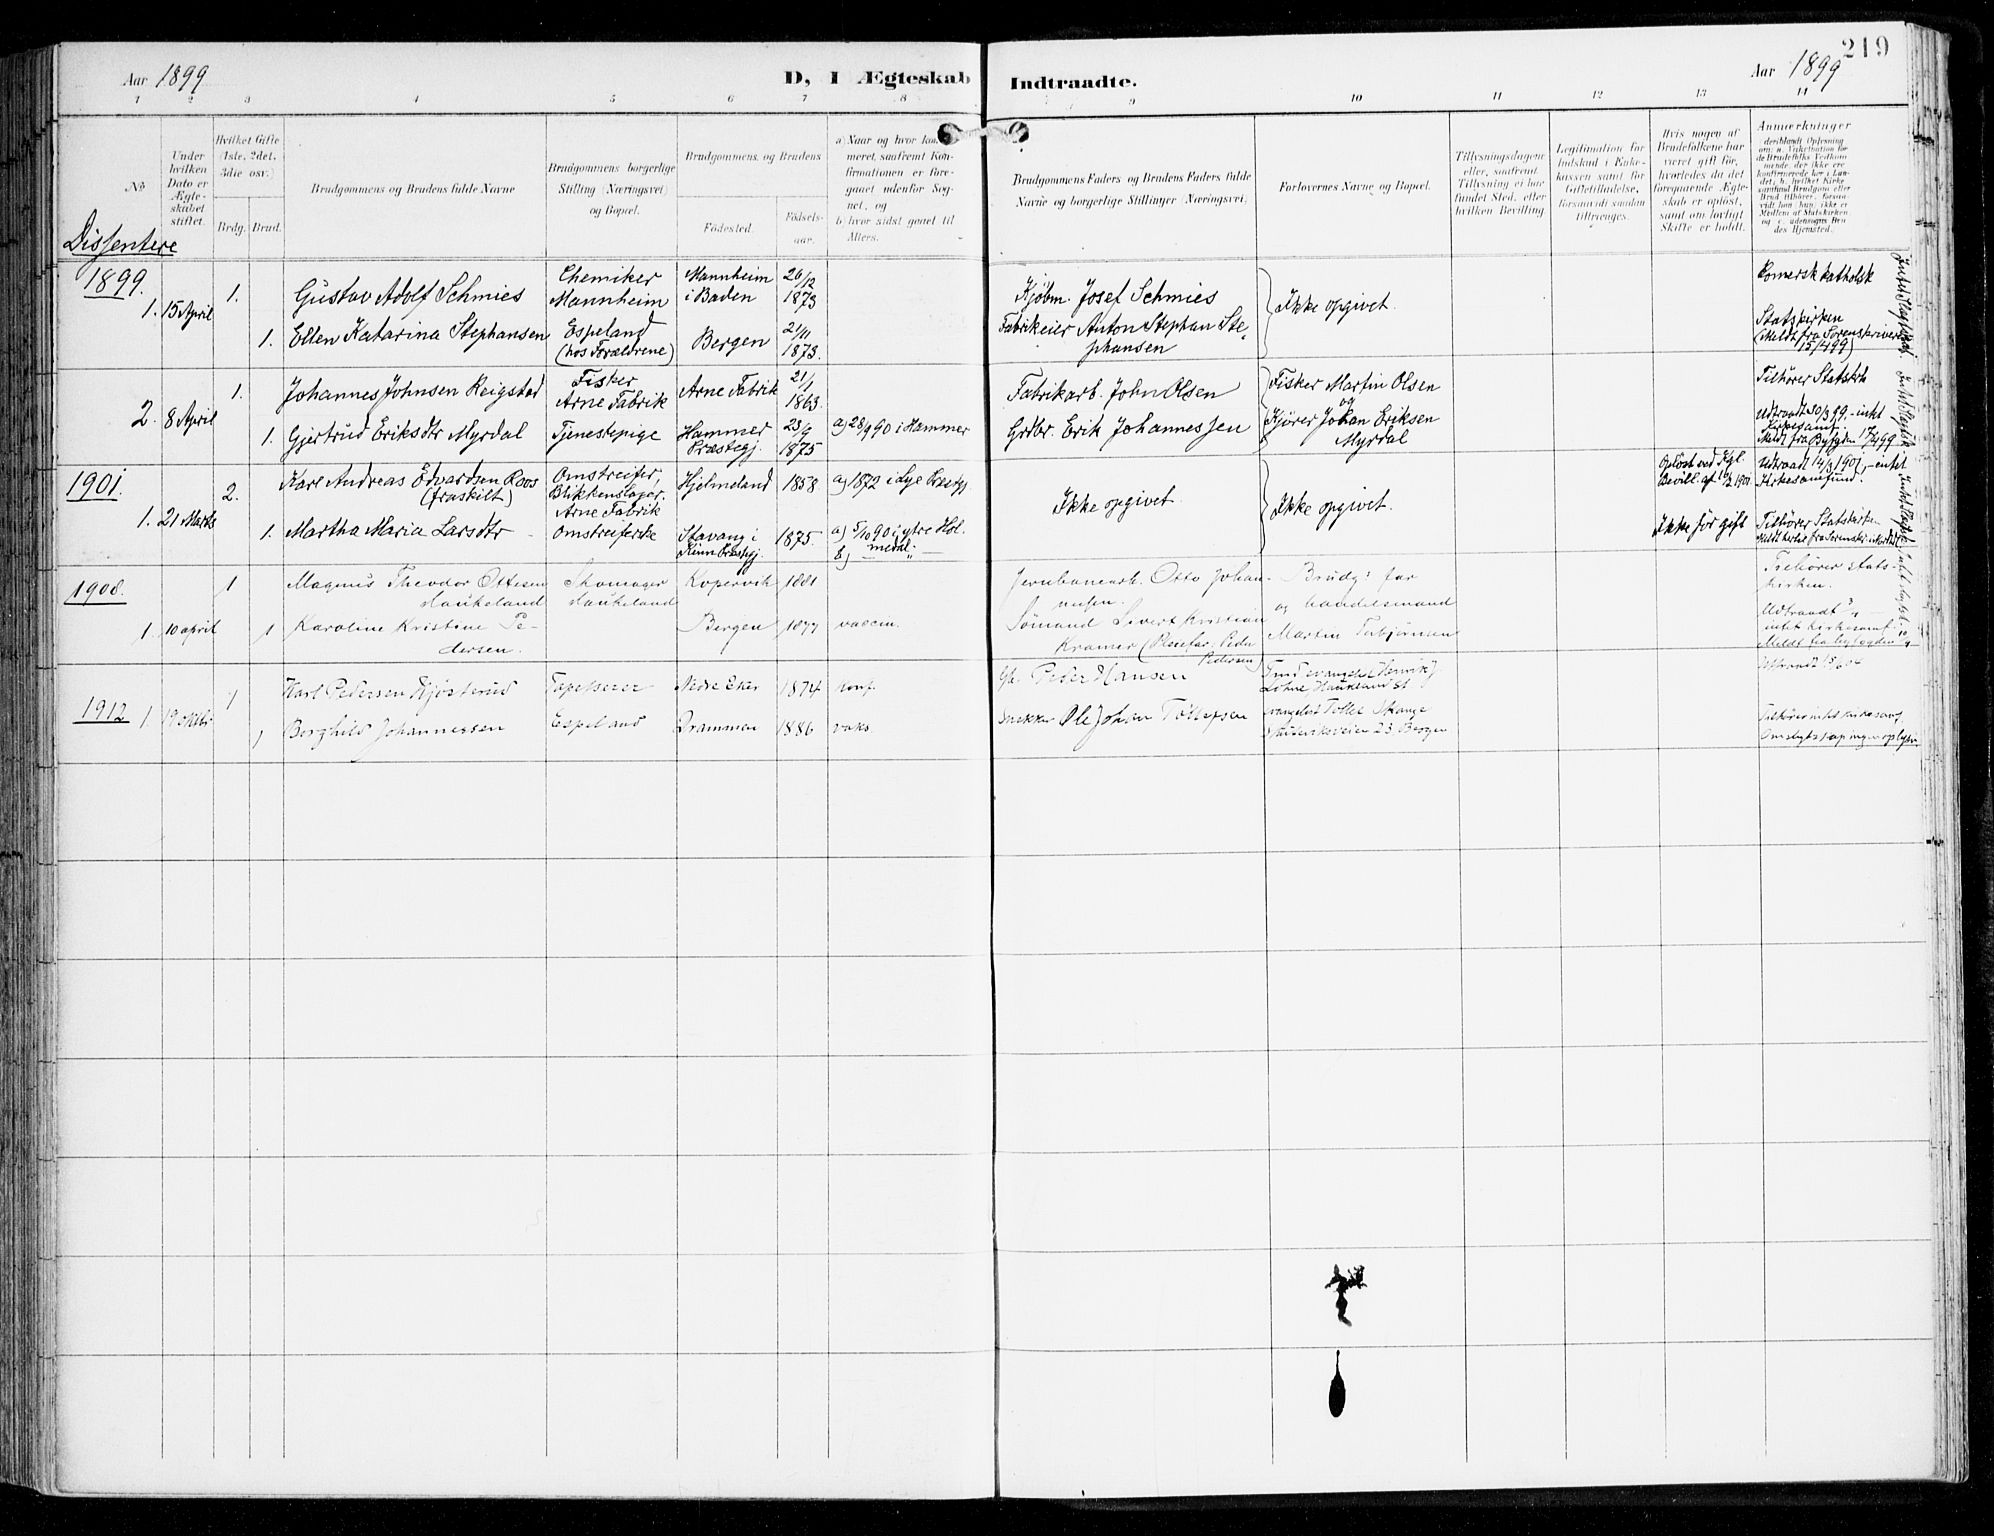 Aar 1899
D, I Ægteskab Indtraadte.
Aar 1899
219
1 2 3 4 5 6 7 8 9 10 11 12 13 14
No
Under hvilken Dato er Ægteskabet stiftet.
Hvilket Gifte (1ste, 2det, 3die osv.)
Brdg. Brud.
Brudgommens og Brudens fulde Navne
Brudgommens borgerlige Stilling (Næringsvei) og Bopæl.
Brudgommens og Brudens
Fødested.
Fødselsaar.
a) Naar og hvor konfirmeret, saafremt Konfirmationen er foregaaet udenfor Sognet, og
b) hvor sidst gaaet til Alters.
Brudgommens Faders og Brudens Faders fulde Navne og borgerlige Stillinger (Næringsvei)
Forlovernes Navne og Bopæl.
Tillysningsdagene eller, saafremt Tillysning ei har fundet Sted, efter hvilken Bevilling.
Legitimation for Indskud i Enkekassen samt for Giftetilladelse, forsaavidt saadan tiltrænges.
Hvis nogen af Brudefolkene har været gift før, hvorledes da det foregaaende Ægteskab er opløst, samt om lovligt Skifte er holdt.
Anmærkninger
Dissentere
1899.
1. 15 April 1. Gustav Adolf Schmies Chemiker Mannheim Mannheim i Baden 26/12 1873 Kjøbm. Josef Schmies Ikke opgivet. Romersk katholsk
1. Ellen Katarina Stephansen Espeland (hos Forældrene) Bergen 21/11 1873. Fabrikeier Anton Stephan Stephansen Statskirken (Meldt fra Sorenskriveren 15/4 99)
2. 8 April 1. Johannes Johnsen Reigstad Fisker Arne Fabrik Arne Fabrik 21/1 1863. Fabrikarb. John Olsen Fisker Martin Olsen og Tilhører Statskrk
1. Gjertrud Eriksdtr Myrdal Tjenestepige Hammer Præstegj. 23/9 1875 a) 28/9 90 i Hammer Grdbr. Erik Johannessen Kjører Johan Eriksen Myrdal Udtraadt 30/3 99.- intet Kirkesamf. Meldt fra Byfgden 17/4 99
1901.
1. 21 Marts 2. Karl Andreas Edvardsen Roos (fraskilt) Omstreifer, Blikkenslager. Arne Fabrik Hjelmeland 1858. a) 1872 i Lye Præstgj. Ikke opgivet. Ikke opgivet. Opløst ved Kgl. Bevill. af Udtraadt 14/3 1901,- intet Kirkesamfund.
1. Martha Maria Larsdtr Omstreiferske Stavang i Kinn Præstgj. 1875. a) 5/10 90 i ytre Holmedal b) Ikke før gift Tilhører Statskirken
1908.
1 10 april 1 Magnus Theodor Ottesen Haukeland Skomager Haukeland Kopervik 1881 Jernbanearb. Otto Johannesen. Brudg: far og handelsmand Martin Tilhører statskirken.
1 Karoline Kristine Pedersen. Bergen 1877 vaccin. Sømand Sivert Kristian Kramer Udtraadt intet kirkesamf:
1912
1. 19 oktbr 1 Karl Pedersen Kjøsterud Tapetserer Nedre Eker 1874 konf. Gb. Peder Hansen
1 Borghild Johannessen Espeland Drammen 1886 vaks. Snekker Ole Johan Tollefsen evangelist Bergen